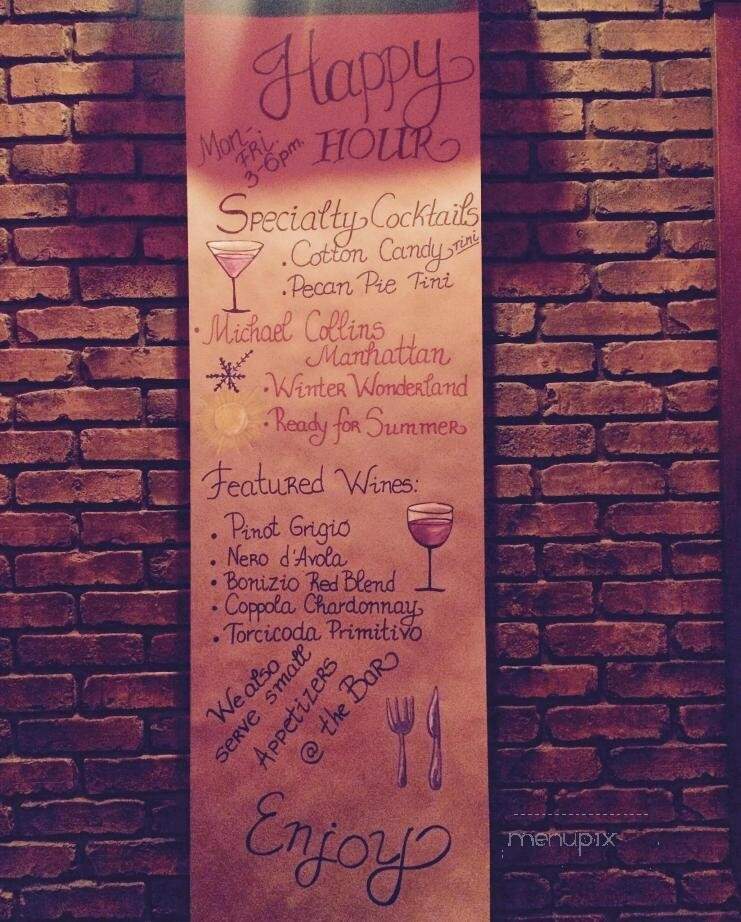 Happy
Hour
Mon-
Fri.
3-6pm.
Specialty Cocktails
• Cotton Candy Tini
• Pecan Pie Tini
• Michael Collins
Manhattan
• Winter Wonderland
• Ready for Summer
Featured Wines:
• Pinot Grigio
• Nero d'Avola
• Bonizio Red Blend
• Coppola Chardonnay
• Torcicoda Primitivo
We also
serve small
Appetizers
@ the Bar
Enjoy
menupix